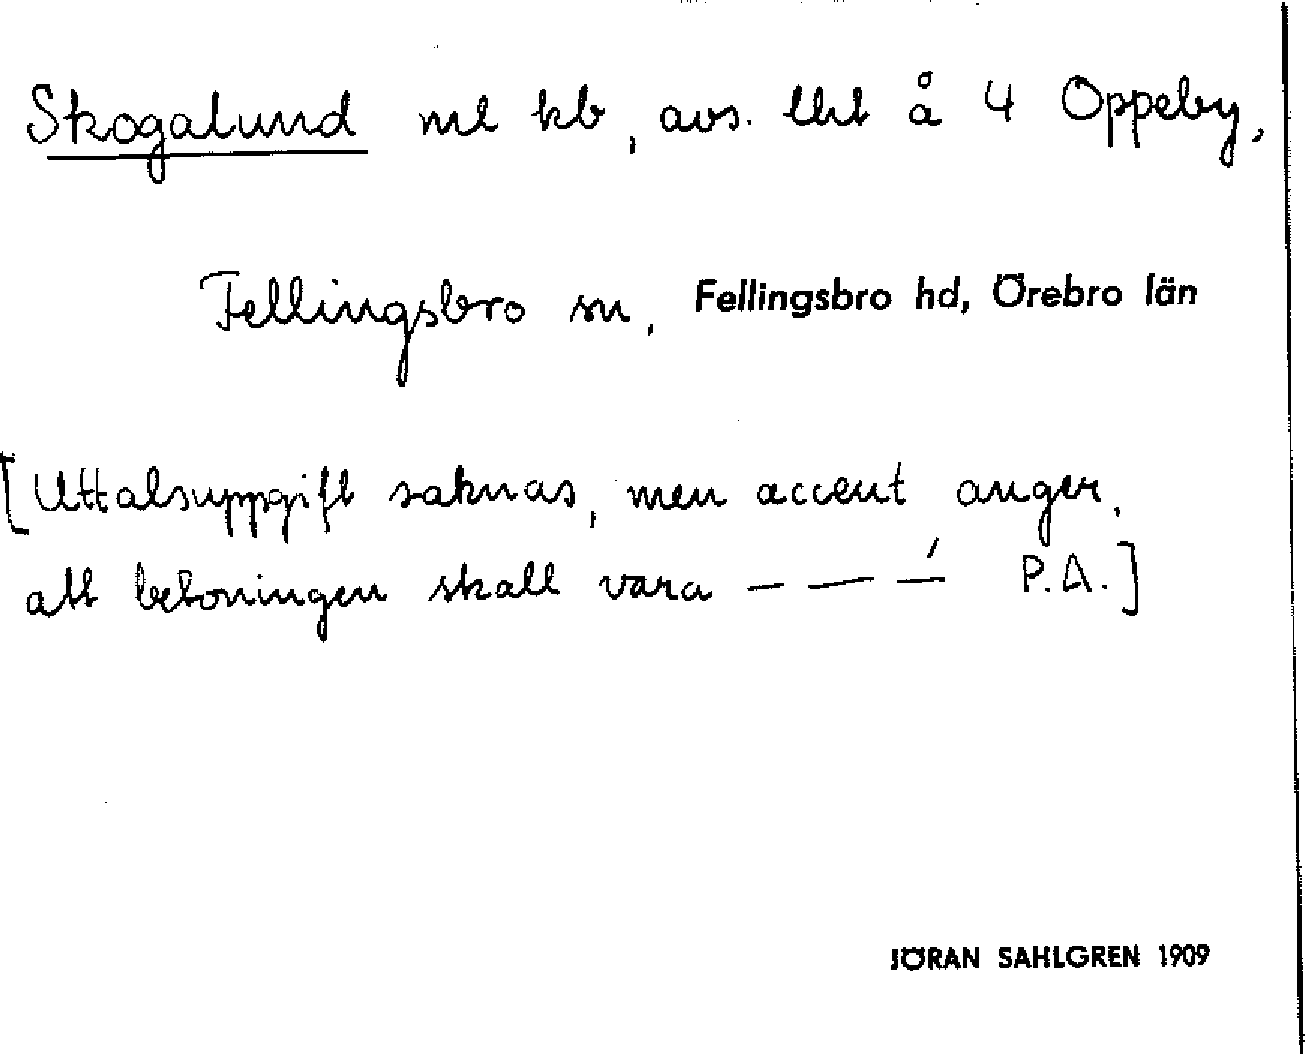 Skogalund ml kb, avs. lht å 4 Oppeby,
Fellingsbro sn, Fellingsbro hd, Örebro län
[Uttalsuppgift saknas, men accent anger,
att betoningen skall vara — — —́ P.A.]
JÖRAN SAHLGREN 1909